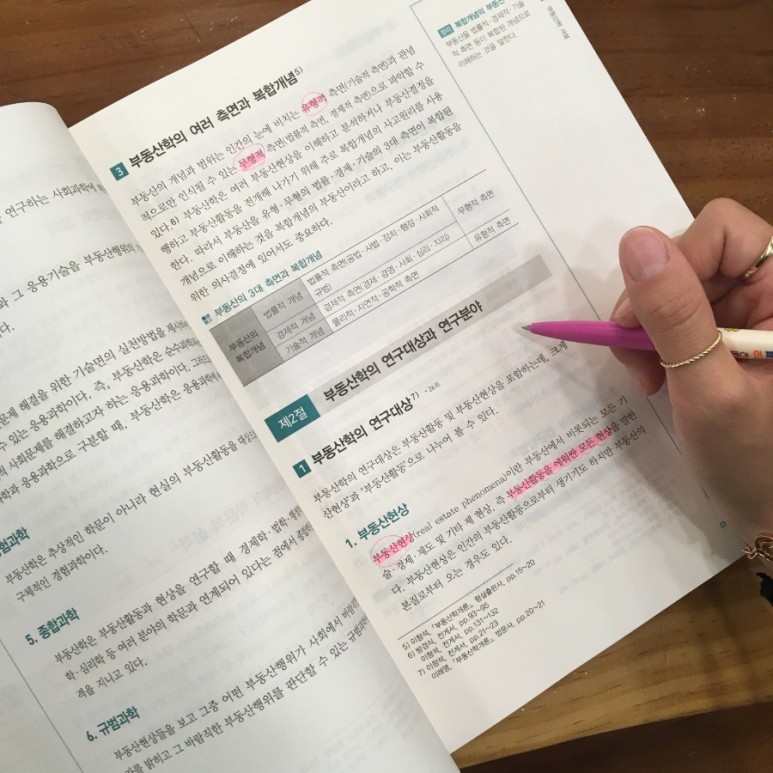 연구하는 사회과학에
과 그 응용기술을 부동산행위의
다.
문제 해결을 위한 기술면의 실천방법을
수 있는 응용과학이다. 즉, 부동산학은 순수과학
적 사회문제를 해결하고자 하는 응용과학이다.
과학과 응용과학으로 구분할 때, 부동산학은 응용과학에
험과학
부동산학은 추상적인 학문이 아니라 현실의 부동산활동을 대상으
구체적인 경험과학이다.
5. 종합과학
부동산학은 부동산활동과 현상을 연구할 때 경제학·법학·
학·심리학 등 여러 분야의 학문과 연계되어 있다는 점에서 종합
적을 지니고 있다.
6. 규범과학
부동산현상들을 보고 그중 어떤 부동산행위가 사회에서 바람
가를 밝히고 그 바람직한 부동산행위를 판단할 수 있는 규범과
3 부동산학의 여러 측면과 복합개념5)
부동산의 개념과 범위는 인간의 눈에 비치는 유형적 측면(기술적 측면)과 관념
적으로만 인식될 수 있는 무형적 측면(법률적 측면, 경제적 측면)으로 파악할 수
있다.6) 부동산학은 여러 부동산현상을 이해하고 분석하거나 부동산결정을
행하고 부동산활동을 전개해 나가기 위해 주로 복합개념의 사고원리를 사용
한다. 따라서 부동산을 유형·무형의 법률·경제·기술의 3대 측면이 복합된
개념으로 이해하는 것을 복합개념의 부동산이라고 하고, 이는 부동산활동을
위한 의사결정에 있어서도 중요하다.
부동산의 3대 측면과 복합개념
부동산의
복합개념
법률적 개념
법률적 측면(공법·사법·정치·행정·사회적
규범)
무형적 측면
경제적 개념
경제적 측면(경제·경영·사회·심리·지리)
기술적 개념
물리적·자연적·공학적 측면
유형적 측면
제2절 부동산학의 연구대상과 연구분야
1 부동산학의 연구대상7)
부동산학의 연구대상은 부동산활동 및 부동산현상을 포함하는데, 크게
산현상'과 '부동산활동'으로 나누어 볼 수 있다.
1. 부동산현상
부동산현상(real estate phenomena)이란 부동산에서 비롯되는 모든 기
술·경제·제도 및 기타 제 현상, 즉 부동산활동을 에워싼 모든 현상을 말한
다. 부동산현상은 인간의 부동산활동으로부터 생기기도 하지만 부동산의
본질로부터 오는 경우도 있다.
5) 이창석, 「부동산학개론」, 형설출판사, pp.15~20
6) 방경식, 전게서, pp.93~95
이창석, 전게서, pp.131~132
7) 이창석, 전게서, pp.21~23
이태영, 「부동산학개론」, 법문사, pp.20~21
복합개념의 부동산
부동산을 법률적·경제적·기술
적 측면 등이 복합된 개념으로
이해하는 것을 말한다.